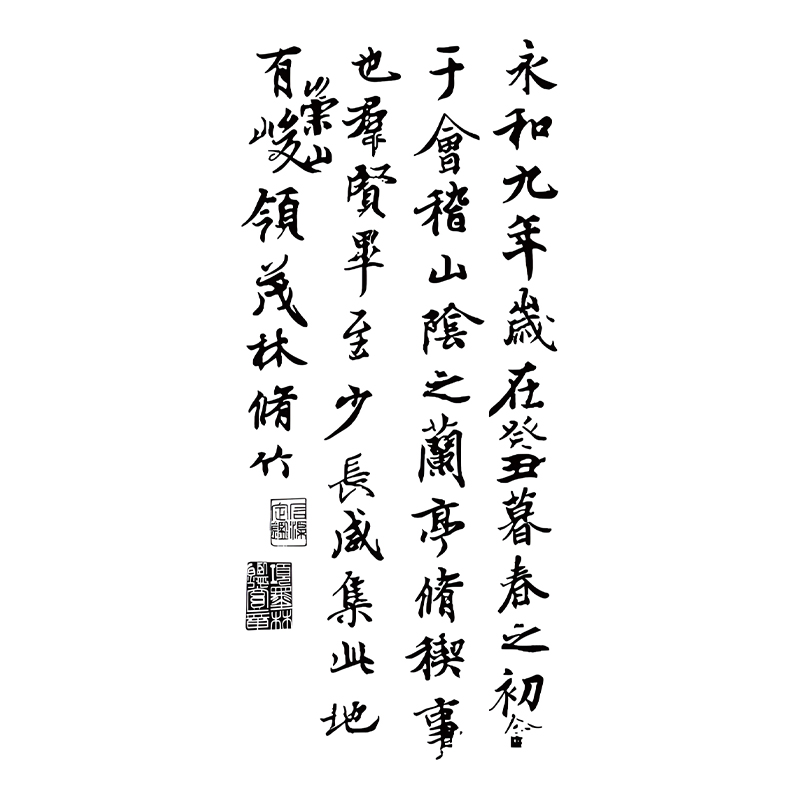 永和九年歲在癸丑暮春之初會
于會稽山陰之蘭亭脩稧事
也羣賢畢至少長咸集此地
有崇山峻領茂林脩竹
項墨林鑑賞章